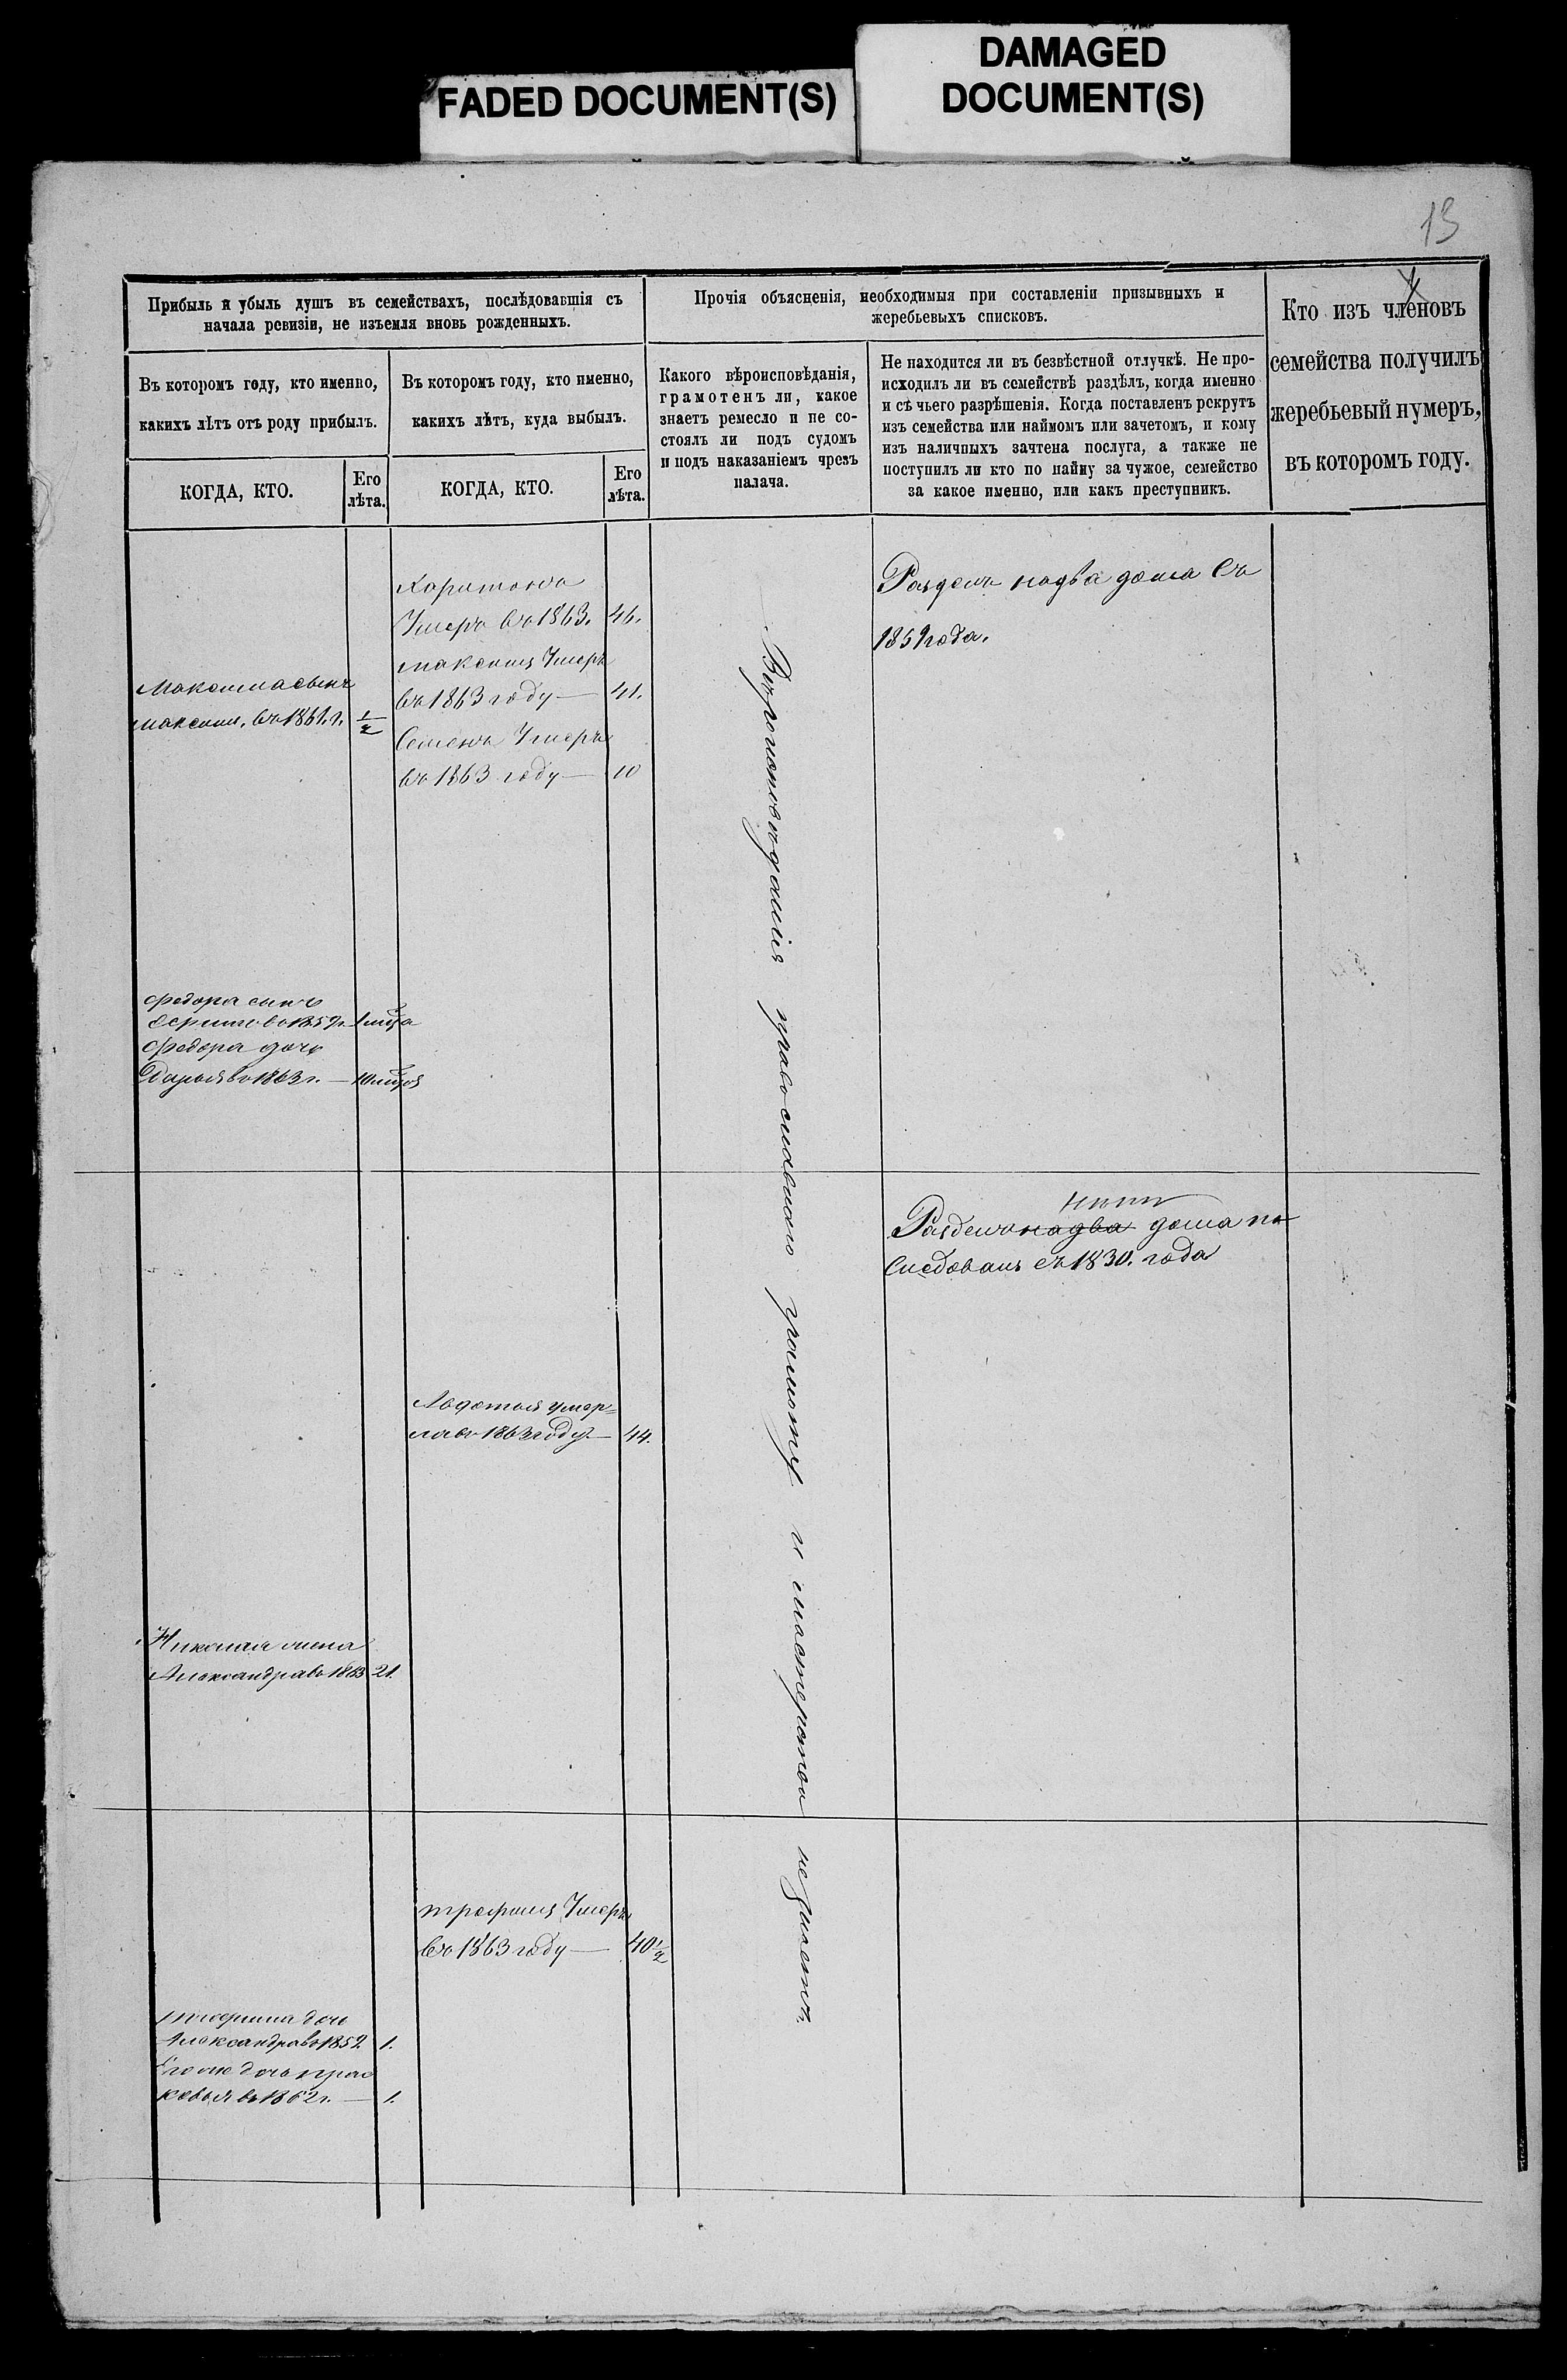 FADED DOCUMENT(S)
DAMAGED
DOCUMENT(S)
13
Прибыль и убыль душъ въ семействахъ, послѣдовавшія съ
начала ревизіи, не изъемля вновь рожденныхъ.
Прочія объясненія, необходимыя при составленіи призывныхъ и
жеребьевыхъ списковъ.
Кто изъ членовъ
семейства получилъ
жеребьевый нумеръ,
въ которомъ году.
Въ которомъ году, кто именно,
какихъ лѣтъ отъ роду прибылъ.
Въ которомъ году, кто именно,
какихъ лѣтъ, куда выбылъ.
Какого вѣроисповѣданія,
грамотенъ ли, какое
знаетъ ремесло и не со-
стоялъ ли подъ судомъ
и подъ наказаніемъ чрезъ
палача.
Не находится ли въ безвѣстной отлучкѣ. Не про-
исходилъ ли въ семействѣ раздѣлъ, когда именно
и съ чьего разрѣшенія. Когда поставленъ рекрутъ
изъ семейства или наймомъ или зачетомъ, и кому
изъ наличныхъ зачтена послуга, а также не
поступилъ ли кто по найму за чужое, семейство
за какое именно, или какъ преступникъ.
КОГДА, КТО.
Его
лѣта.
КОГДА, КТО.
Его
лѣта.
Харитонъ
Умеръ въ 1863. 46.
максимъ Умеръ
въ 1863 году — 41.
Семенъ Умеръ
въ 1863 году — 10
Максима сынъ
максим. въ 1861. г. 1/2
Разделъ надва дома съ
1859 года.
федора сынъ
въ 1859 г.
федора дочь
Дарья въ 1863 г. —
Вероисповѣданія православнаго грамоту и мастерства не знаетъ
Разделъ надва дома по
Следовалъ съ 1830. года
Авдотья умер=
ла въ 1863 году — 44.
Николая жена
Александра въ 1863 21.
трофимъ Умеръ
въ 1863 году — 40 1/2
дочь
Александра въ 1859. 1.
Его же дочь прас
ковья въ 1862 г. — 1.